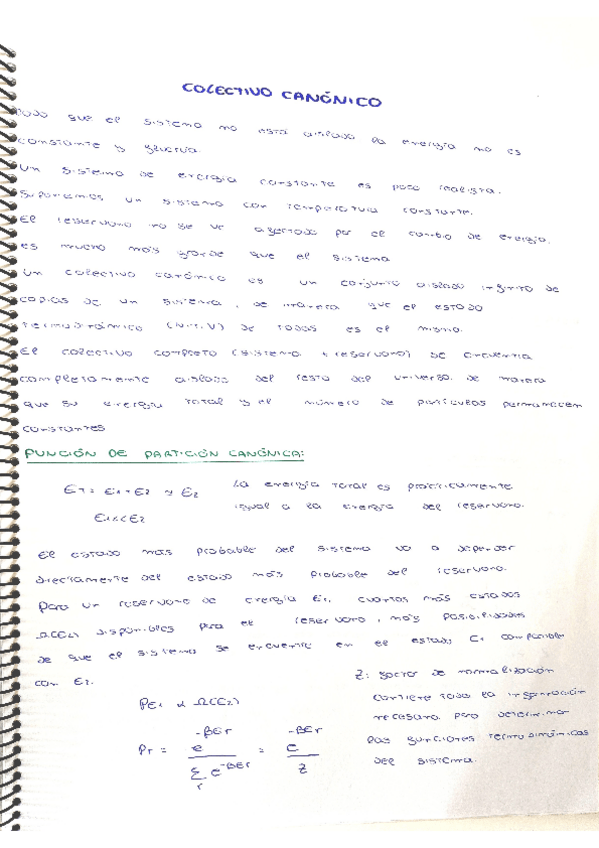 COLECTIVO CANÓNICO
que el sistema no está aislado la energía no es
constante y fluctúa.
Un sistema de energía constante es poco realista.
Suponemos un sistema con temperatura constante.
El reservorio no se ve afectado por el cambio de energía.
es mucho más grande que el sistema
Un colectivo canónico es un conjunto aislado infinito de
copias de un sistema, de manera que el estado
termodinámico (N,T,V) de todas es el mismo.
El colectivo completo (sistema + reservorio) se encuentra
completamente aislado del resto del universo. de manera
que su energía total y el número de partículas permanecen
constantes
FUNCIÓN DE PARTICIÓN CANÓNICA:
ET = E1 + E2 ≈ E2 La energía total es prácticamente
E1 << E2 igual a la energía del reservorio.
El estado más probable del sistema va a depender
directamente del estado más probable del reservorio.
Para un reservorio de energía E2, cuantos más estados
Ω(E2) disponibles para el reservorio, más posibilidades
de que el sistema se encuentre en el estado E1 compatible
con E2.
Z: factor de normalización
contiene toda la información
necesaria para determinar
las funciones termodinámicas
del sistema.
PE1 α Ω(E2)
Pr = e^-βEr / Σr e^-βEr = e^-βEr / Z